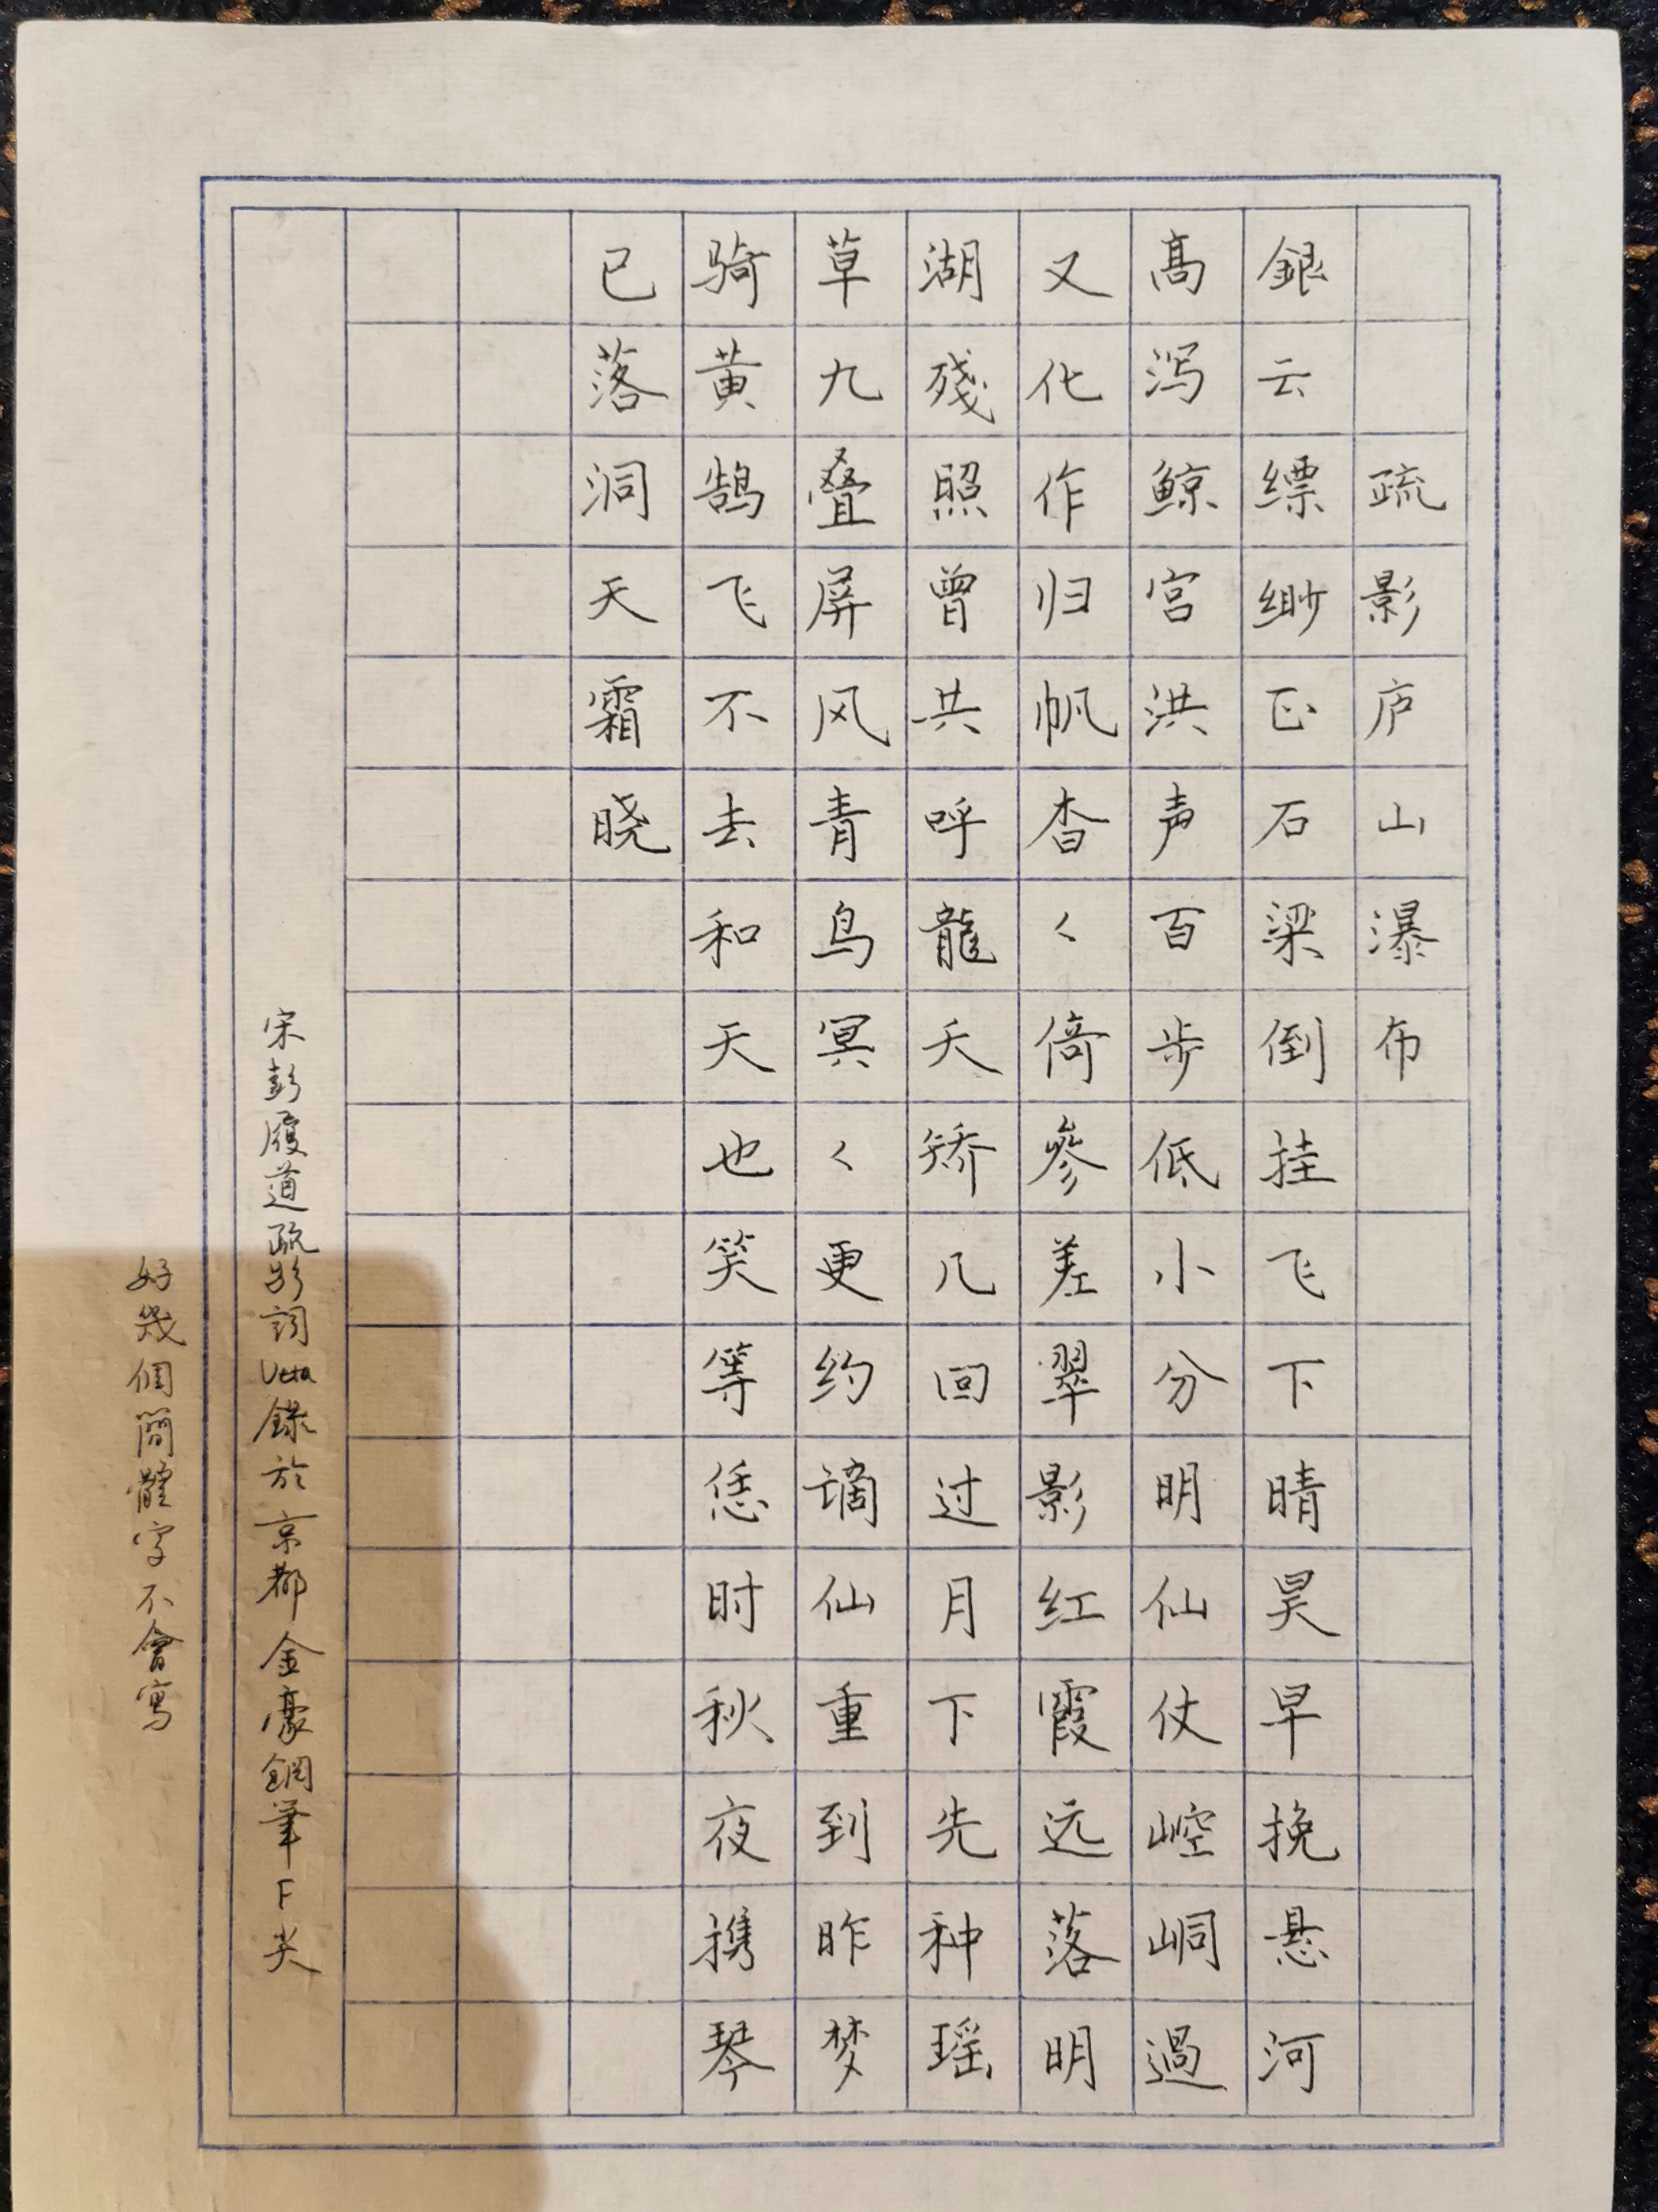 疏影庐山瀑布
銀云缥缈正石梁倒挂飞下晴昊早挽悬河
高泻鲸宫洪声百步低小分明仙仗崆峒過
又化作归帆杳〱倚參差翠影红霞远落明
湖殘照曾共呼龍夭矫几回过月下先种瑶
草九叠屏风青鸟冥〱更约谪仙重到昨梦
骑黄鹄飞不去和天也笑等恁时秋夜携琴
已落洞天霜晓
宋彭履道疏影詞Vета錄於京都金豪鋼筆F尖
好幾個簡體字不會寫